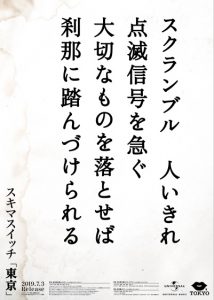 スクランブル 人いきれ
点滅信号を急ぐ
大切なものを落とせば
刹那に踏んづけられる
スキマスイッチ「東京」
2019.7.3
Release
UNIVERSAL
TOKYO